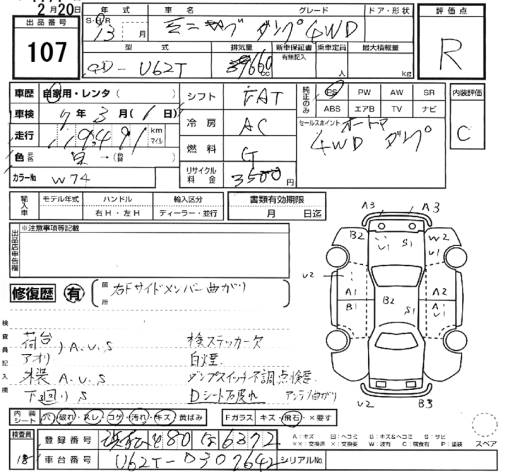 2月20日
出品番号
107
年式 車名 グレード ドア・形状
S・H 13 月 ダンプ 4WD
型式 排気量 新車保証書 乗車定員 最大積載量
有無記入
GD-U62T 660 cc 人 kg
評価点
R
内装評価
C
車歴 自家用・レンタ( )
車検 年3月1日
走行 119491 km マイル
色
カラーNo W74
シフト FAT
冷房 AC
燃料 G
リサイクル料金 3500円
純正のみ PS PW AW SR
ABS エアB TV ナビ
セールスポイント オートマ
4WD ダンプ
輸入車 モデル年式 ハンドル 輸入区分
右H・左H ディーラー・並行
書類有効期限
月 日迄
出品店申告欄
※注意事項等記載
修復歴 有
箇所 右Fサイドメンバー曲がり
検査員記入欄
荷台 A.U.S 検ステッカー欠
アオリ 白煙
A.U.S ダンプスイッチ不調点検要
下廻り S Dシート破れ アンテナ曲がり
A3 A3
B2 U1 S1 W2 U1
U2
A1 A1
B1 B2 S1 U1
U2 B3
内装シート 穴 破れ スレ コゲ 汚れ キズ 黄ばみ Fガラス キズ・飛石・×要す
検査員
18
登録番号 80 6372
車台番号 U62T-0307642 シリアルNo
A:キズ U:ヘコミ B:キズ&ヘコミ S:サビ
XX:交換済 X:交換要 W:波有 C:腐食有 P:塗装
スペア